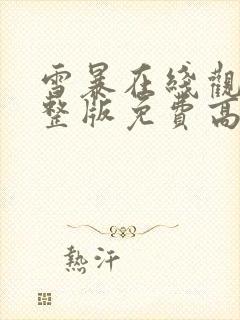 雪暴在綫觀
整版免費高
熱汗